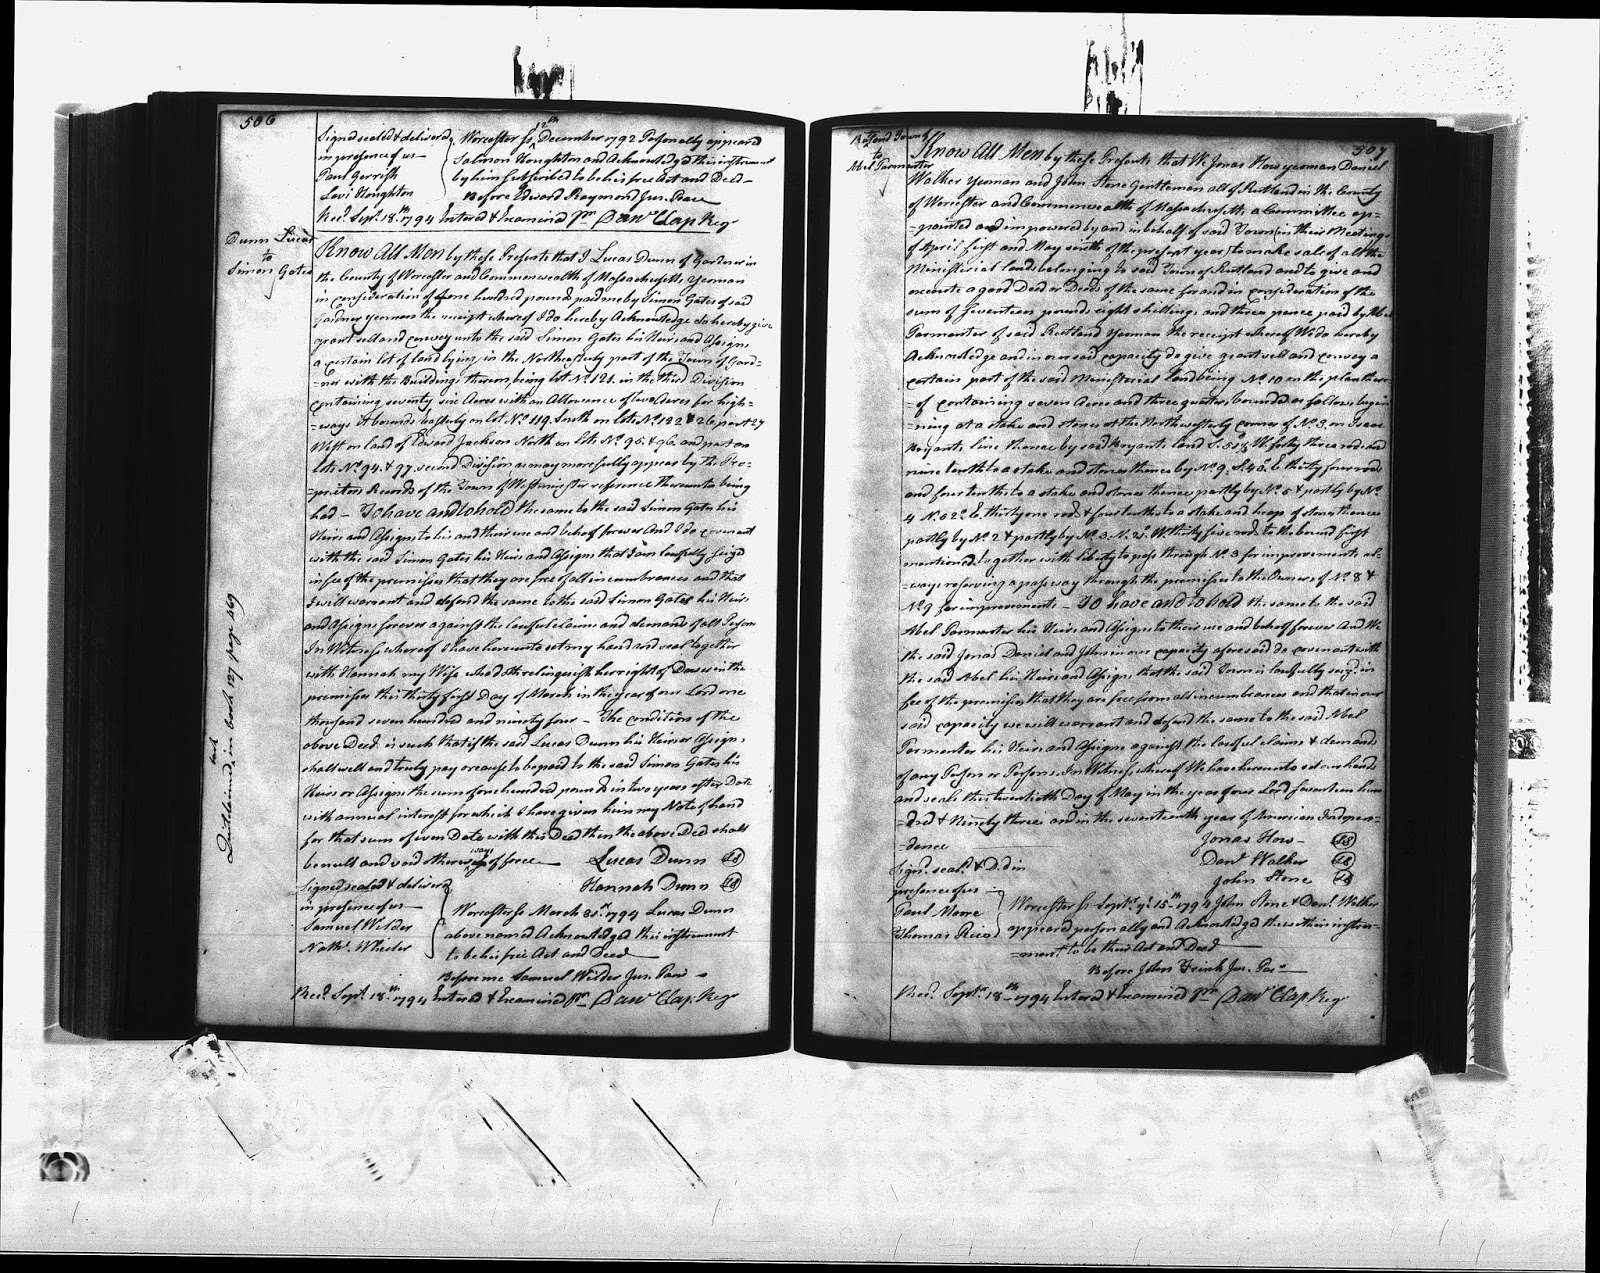 506
Signed sealed & delivered
in presence of us
Paul Gerrish
Levi Houghton
Worcester Ss. 12th December 1792 Personally appeared
Salmon Houghton and Acknowledged this instrument
by him subscribed to be his free Act and Deed
Before Edward Raymond Jus. Peace
Recd. Sept. 18th 1794 Entered & Examined Pr Danl Clap Regr
Dunn Lucas
to
Simon Gates
Know All Men by these Presents that I Lucas Dunn of Gardner in
the County of Worcester and Commonwealth of Massachusetts Yeoman
in consideration of one hundred pounds paid me by Simon Gates of said
Gardner yeoman the receipt whereof I do hereby Acknowledge do hereby give
grant sell and convey unto the said Simon Gates his Heirs and Assigns
a certain lot of land lying in the Northeasterly part of the Town of Gard=
=ner with the Buildings thereon being lot No. 121. in the third Division
containing seventy six Acres with an Allowance of two Acres for high=
=ways it bounds easterly on lot No. 119 South on lots No. 122 & 26, part 27
West on land of Edward Jackson North on lots No. 95 & 96 and part on
lots No. 94 & 97 second Division as may more fully appear by the Pro=
=prietors Records of the Town of Westminster reference thereunto being
had — To have and to hold the same to the said Simon Gates his
Heirs and Assigns to his and their use and behoof forever And I do covenant
with the said Simon Gates his Heirs and Assigns that I am lawfully seized
in fee of the premisses that they are free of all incumbrances and that
I will warrant and defend the same to the said Simon Gates his Heirs
and Assigns forever against the lawful claims and demands of all Persons
In Witness whereof I have hereunto set my hand and seal together
with Hannah my Wife who doth relinquish her right of Dower in the
premisses this thirty first Day of March in the year of our Lord one
thousand seven hundred and ninety four — The condition of the
above Deed is such that if the said Lucas Dunn his Heirs or Assigns
shall well and truly pay or cause to be paid to the said Simon Gates his
Heirs or Assigns the sum of one hundred pounds in two years after Date
with annual interest for which I have given him my Note of hand
for that sum of even Date with this Deed then the above Deed shall
be null and void otherways of force
Lucas Dunn LS
Hannah Dunn LS
Signed sealed & deliverd
in presence of us
Samuel Wilder
Nathl. Wheeler
Worcester Ss March 31st 1794 Lucas Dunn
above named Acknowledged this instrument
to be his free Act and Deed
Before me Samuel Wilder Jus. Pace
Recd. Sept. 18th 1794 Entered & Examined Pr Danl Clap Regr
in book 127 page 469
507
Rutland Town
to
Abel Parmenter
Know All Men by these Presents that We Jonas How yeoman Daniel
Walker Yeoman and John Stone Gentleman all of Rutland in the County
of Worcester and Commonwealth of Massachusetts a Committee ap=
=pointed and impowered by and in behalf of said Town (in their Meetings
of April first and May sixth of the present year) to make sale of all the
Ministerial lands belonging to said Town of Rutland and to give and
execute a good Deed or Deeds of the same for and in consideration of the
sum of seventeen pounds eight shillings and three pence paid by Abel
Parmenter of said Rutland Yeoman the receipt whereof We do hereby
Acknowledge and in our said capacity do give grant sell and convey a
certain part of the said Ministerial land being No. 10 on the plan there=
=of containing seven Acres and three quarters, bounded as follows, begin
=ning at a stake and stones at the Northwesterly corner of No. 3. on Isaac
Bryants line thence by said Bryants land S. W. forty three rods and
nine tenths to a stake and stones thence by No. 9. S. 40. E thirty four rods
and four tenths to a stake and stones thence partly by No. 5 & partly by No.
4 N. E. thirty one rods & four tenths to a stake and heap of stones thence
partly by No. 2 & partly by No. 3. N. W. thirty five rods to the bound first
mentioned, together with liberty to pass through No. 3 for improvements al=
=ways reserving a pass way through the premisses to the Owners of No. 8 &
No. 9 for improvements — To have and to hold the same to the said
Abel Parmenter his Heirs and Assigns to their use and behoof forever And We
the said Jonas Daniel and John in our capacity aforesaid do covenant with
the said Abel his Heirs and Assigns that the said Town is lawfully seized in
fee of the premisses that they are free from all incumbrances and that in our
said capacity we will warrant and defend the same to the said Abel
Parmenter his Heirs and Assigns against the lawful claims & demands
of any Person or Persons. In Witness whereof We have hereunto set our hands
and seals this twentieth Day of May in the year of our Lord seventeen hun
=dred & Ninety three and in the seventeenth year of American Indepen=
=dence
Jonas How LS
Danl Walker LS
John Stone LS
Signd. seald. & Dd. in
presence of us
Paul Moore
Thomas Rice
Worcester Ss. Septr. ye 15th 1794 John Stone & Danl Walker
appeared personally and Acknowledged the within instru=
=ment to be their Act and Deed
Before John Frink Jus. Pace
Recd. Septr. 18th 1794 Entered & Examined Pr Danl Clap Regr